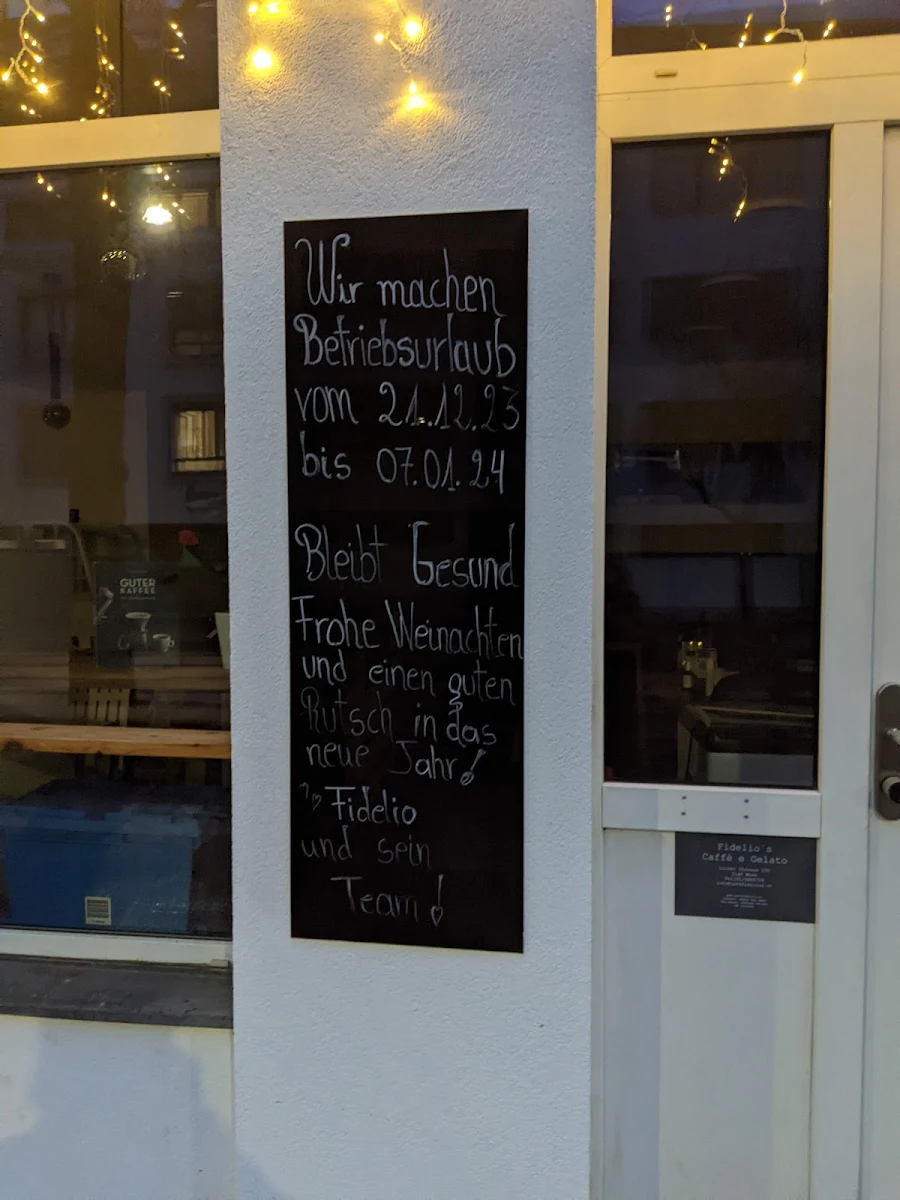 Wir machen
Betriebsurlaub
vom 21.12.23
bis 07.01.24
Bleibt Gesund
Frohe Weinachten
und einen guten
Rutsch in das
neue Jahr!
Fidelio
und sein
Team!
GUTER
KAFFEE
Fidelio's
Caffè e Gelato